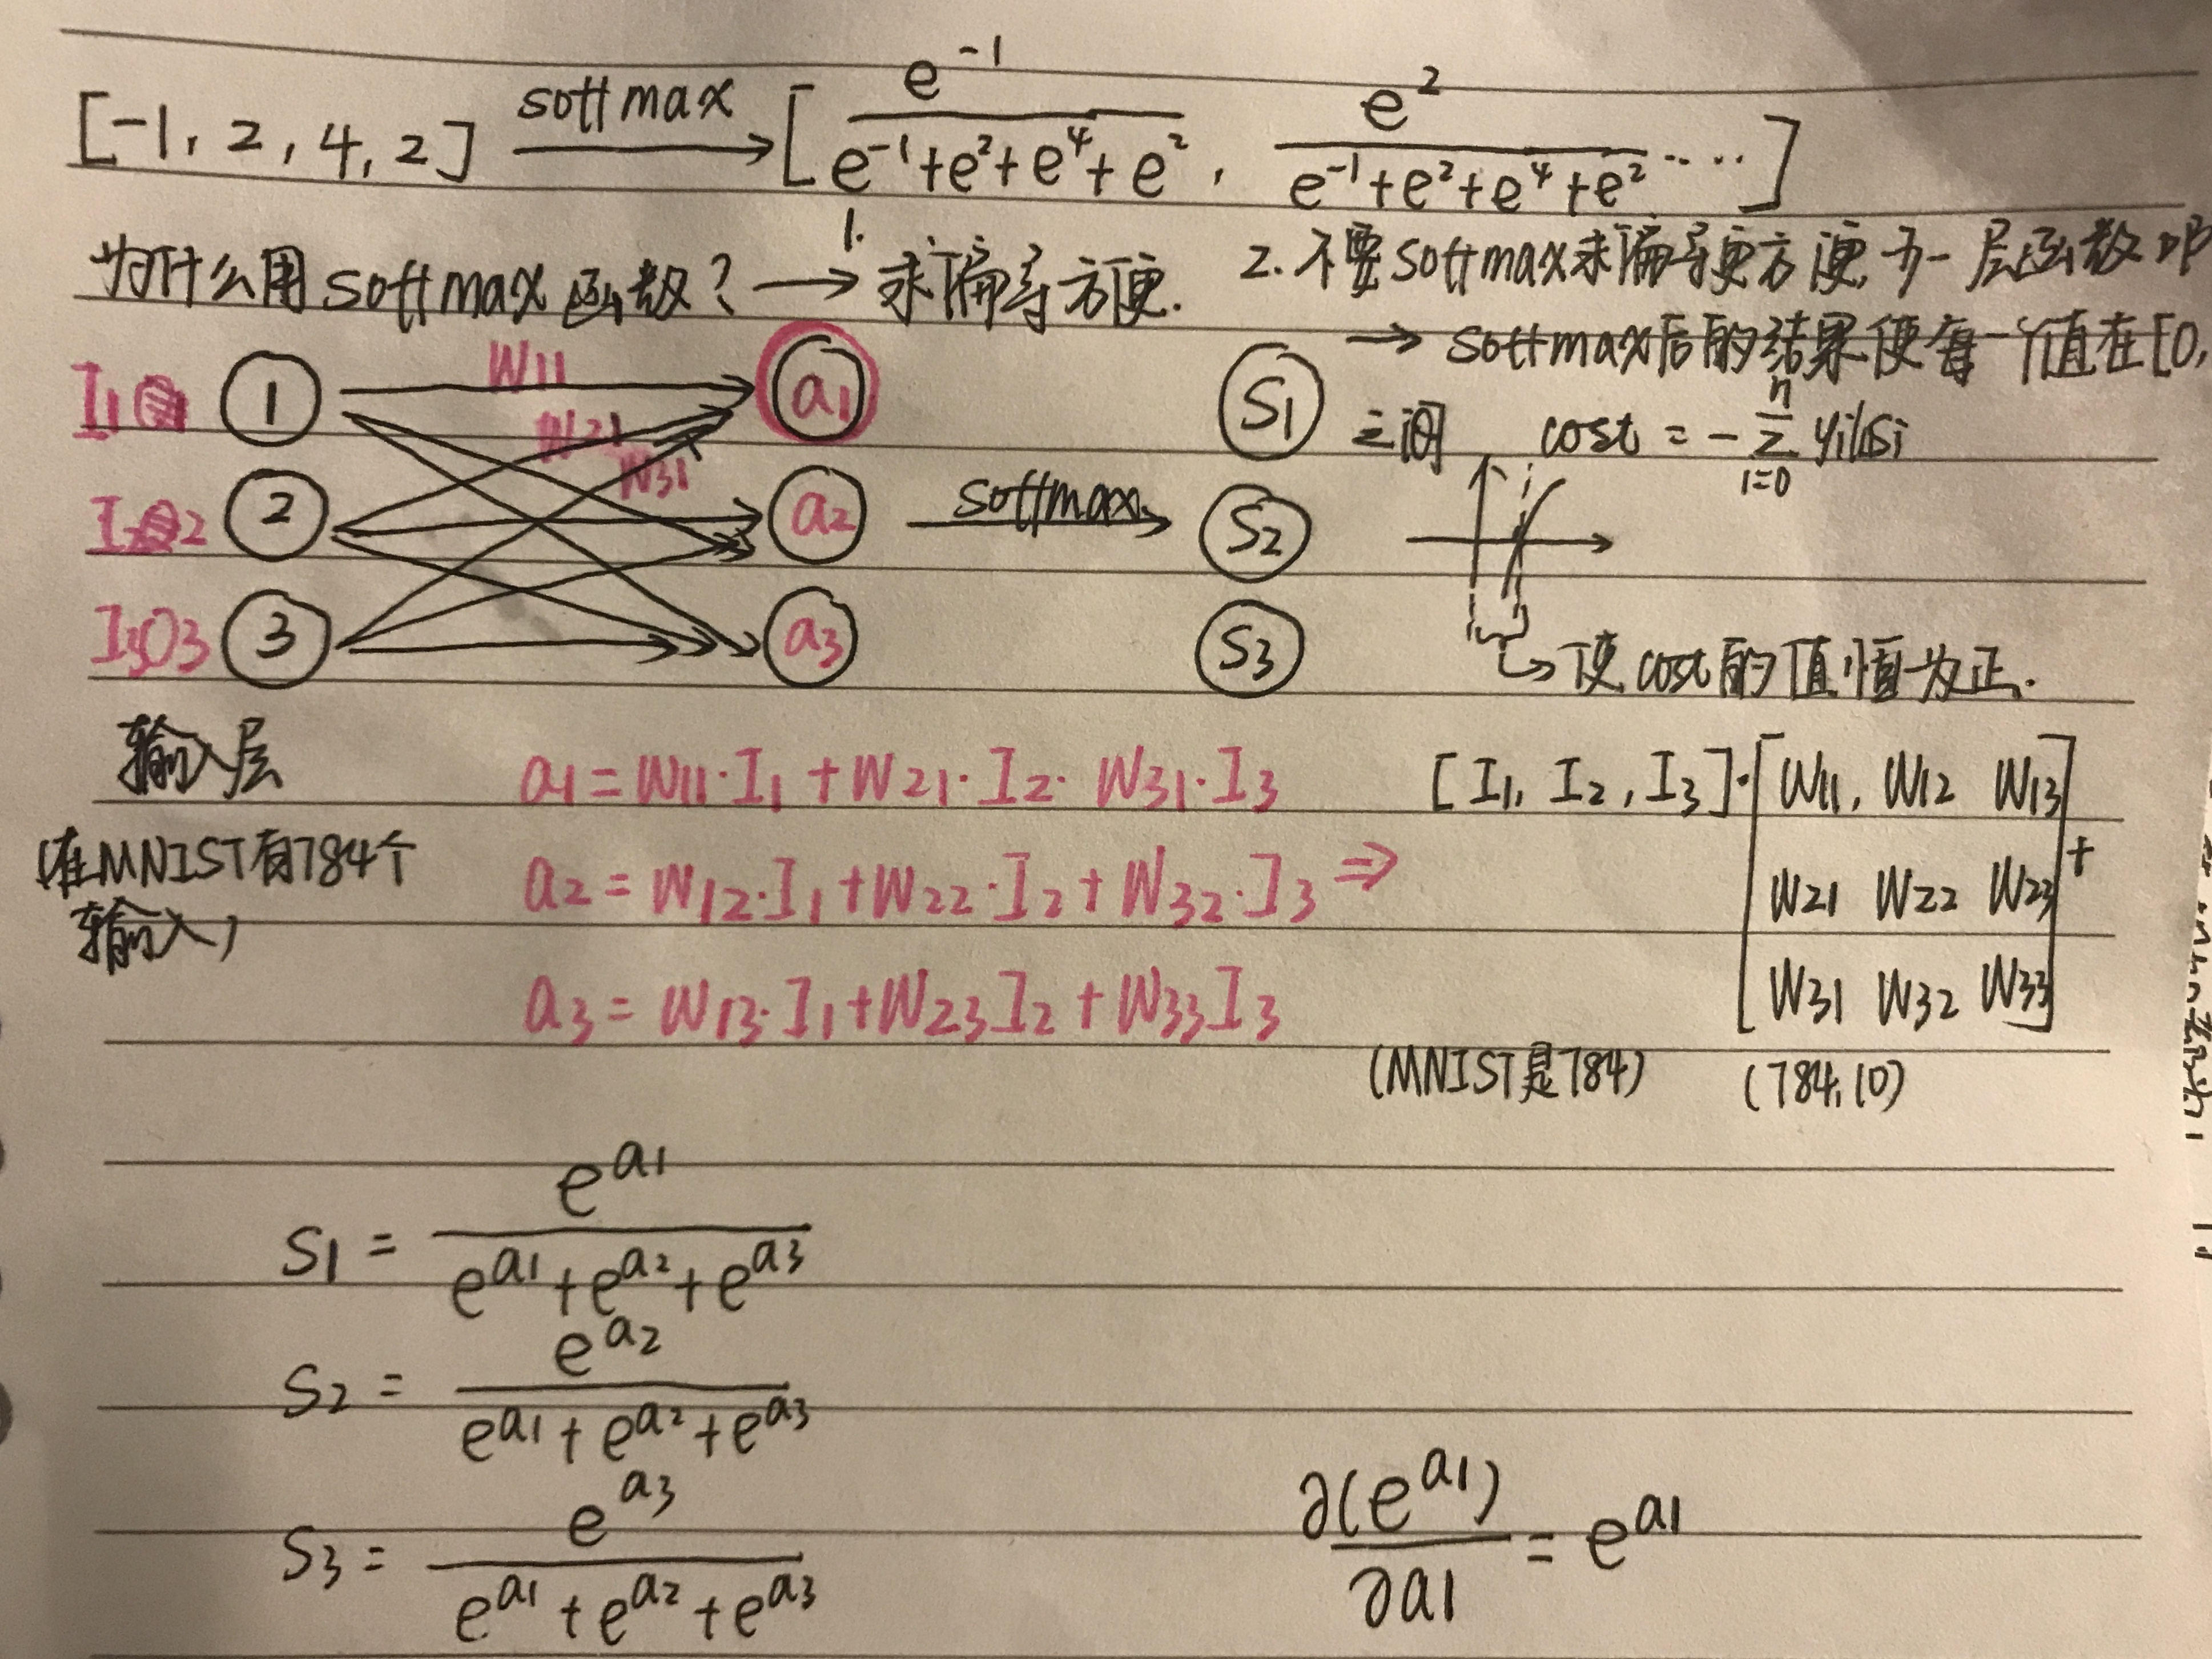 [-1, 2, 4, 2] softmax → [ e^-1 / (e^-1+e^2+e^4+e^2) , e^2 / (e^-1+e^2+e^4+e^2) ···· ]
为什么用softmax函数? → 1. 求偏导方便. 2. 不要softmax求偏导更方便,少一层函数
→ softmax后的结果使每一个值在[0,
I1 ① W11 a1 S1 之间 cost = - Σ(i=0, n) yi
W21
W31
I2 ② a2 softmax → S2
I3 O3 ③ a3 S3 使cost的值恒为正.
输入层
(在MNIST有784个
输入)
a1 = W11·I1 + W21·I2· W31·I3
a2 = W12·I1 + W22·I2 + W32·I3 ⇒
a3 = W13·I1 + W23I2 + W33I3
[I1, I2, I3] · [W11, W12 W13
W21 W22 W23
W31 W32 W33] +
(MNIST是784) (784,10)
S1 = e^a1 / (e^a1 + e^a2 + e^a3)
S2 = e^a2 / (e^a1 + e^a2 + e^a3)
S3 = e^a3 / (e^a1 + e^a2 + e^a3)
∂(e^a1) / ∂a1 = e^a1